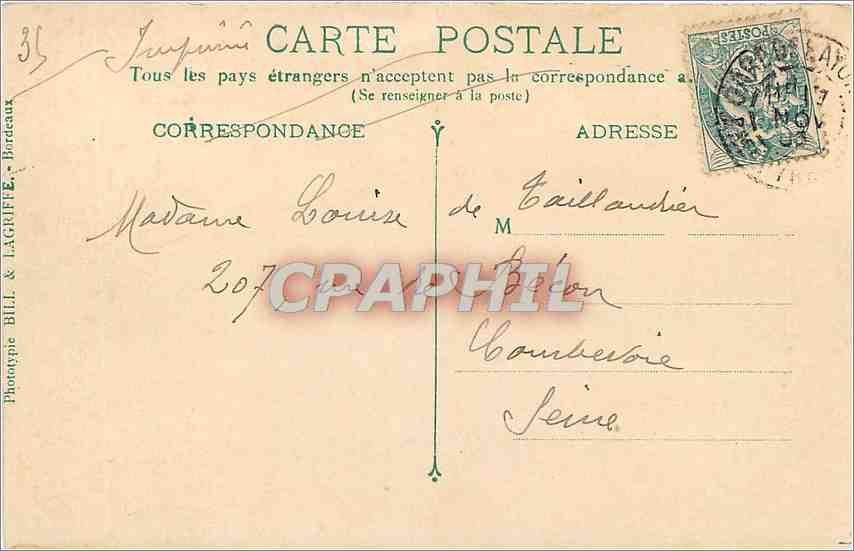 35
Imprimé
CARTE POSTALE
Tous les pays étrangers n'acceptent pas la correspondance a
(Se renseigner à la poste)
CORRESPONDANCE
ADRESSE
POSTES
Madame Louise de Taillandier
M
207 de Bécon
Courbevoie
Seine
CPAPHIL
Phototypie BILL & LAGRIFFE. - Bordeaux